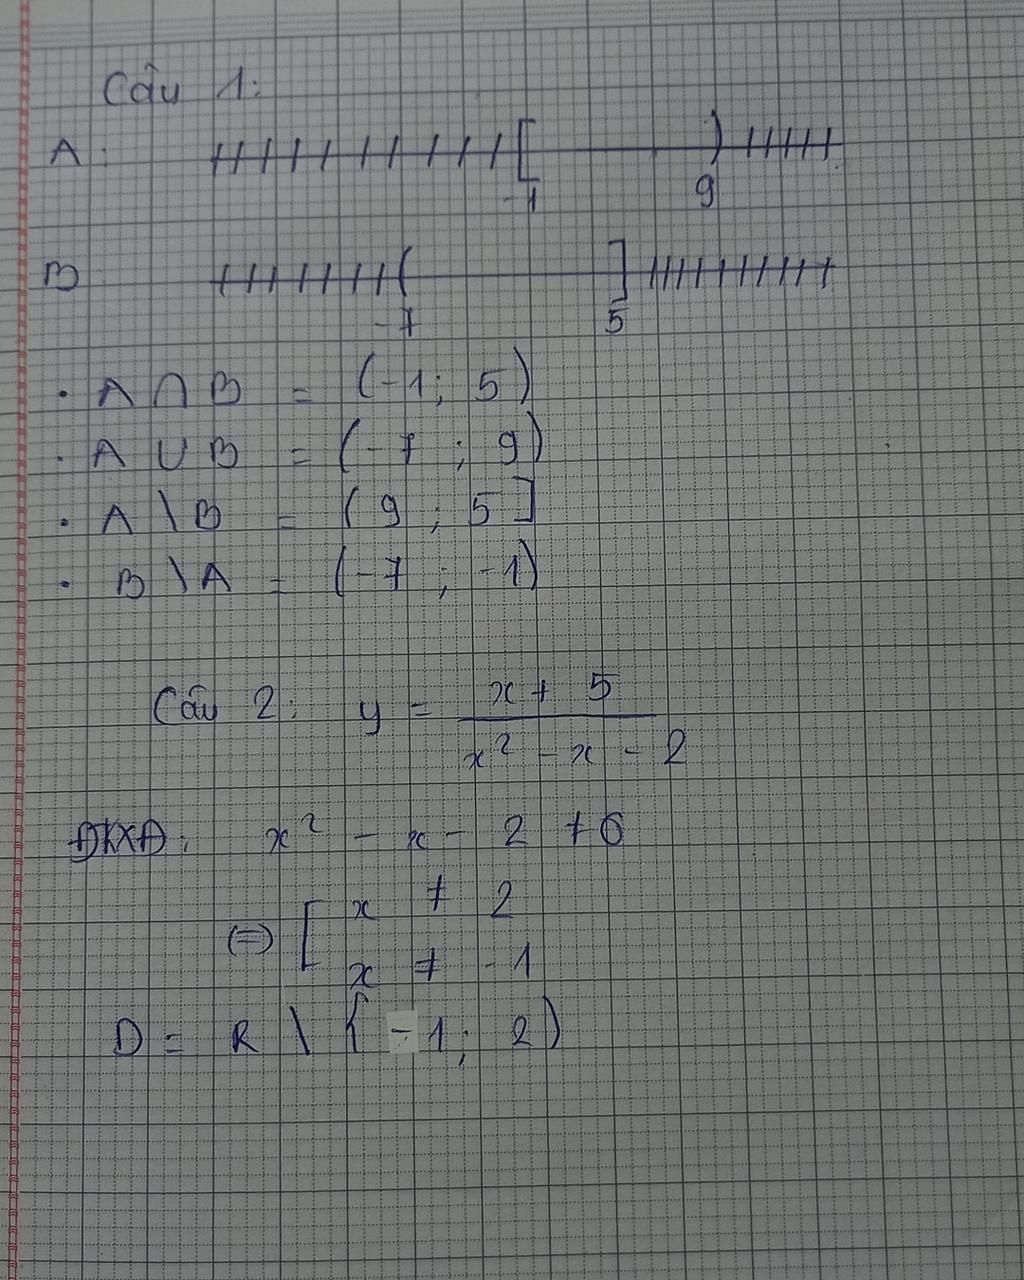 Câu 1:
A:
-1 9
B
-7 5
. A ∩ B = (-1; 5)
. A ∪ B = (-7 ; 9)
. A \ B = (9 ; 5]
. B \ A = (-7 ; -1)
Câu 2: y = \frac{x + 5}{x² - x - 2}
ĐKXĐ: x² - x - 2 ≠ 0
⇔ [ x ≠ 2
x ≠ -1
D = R \ { -1; 2)